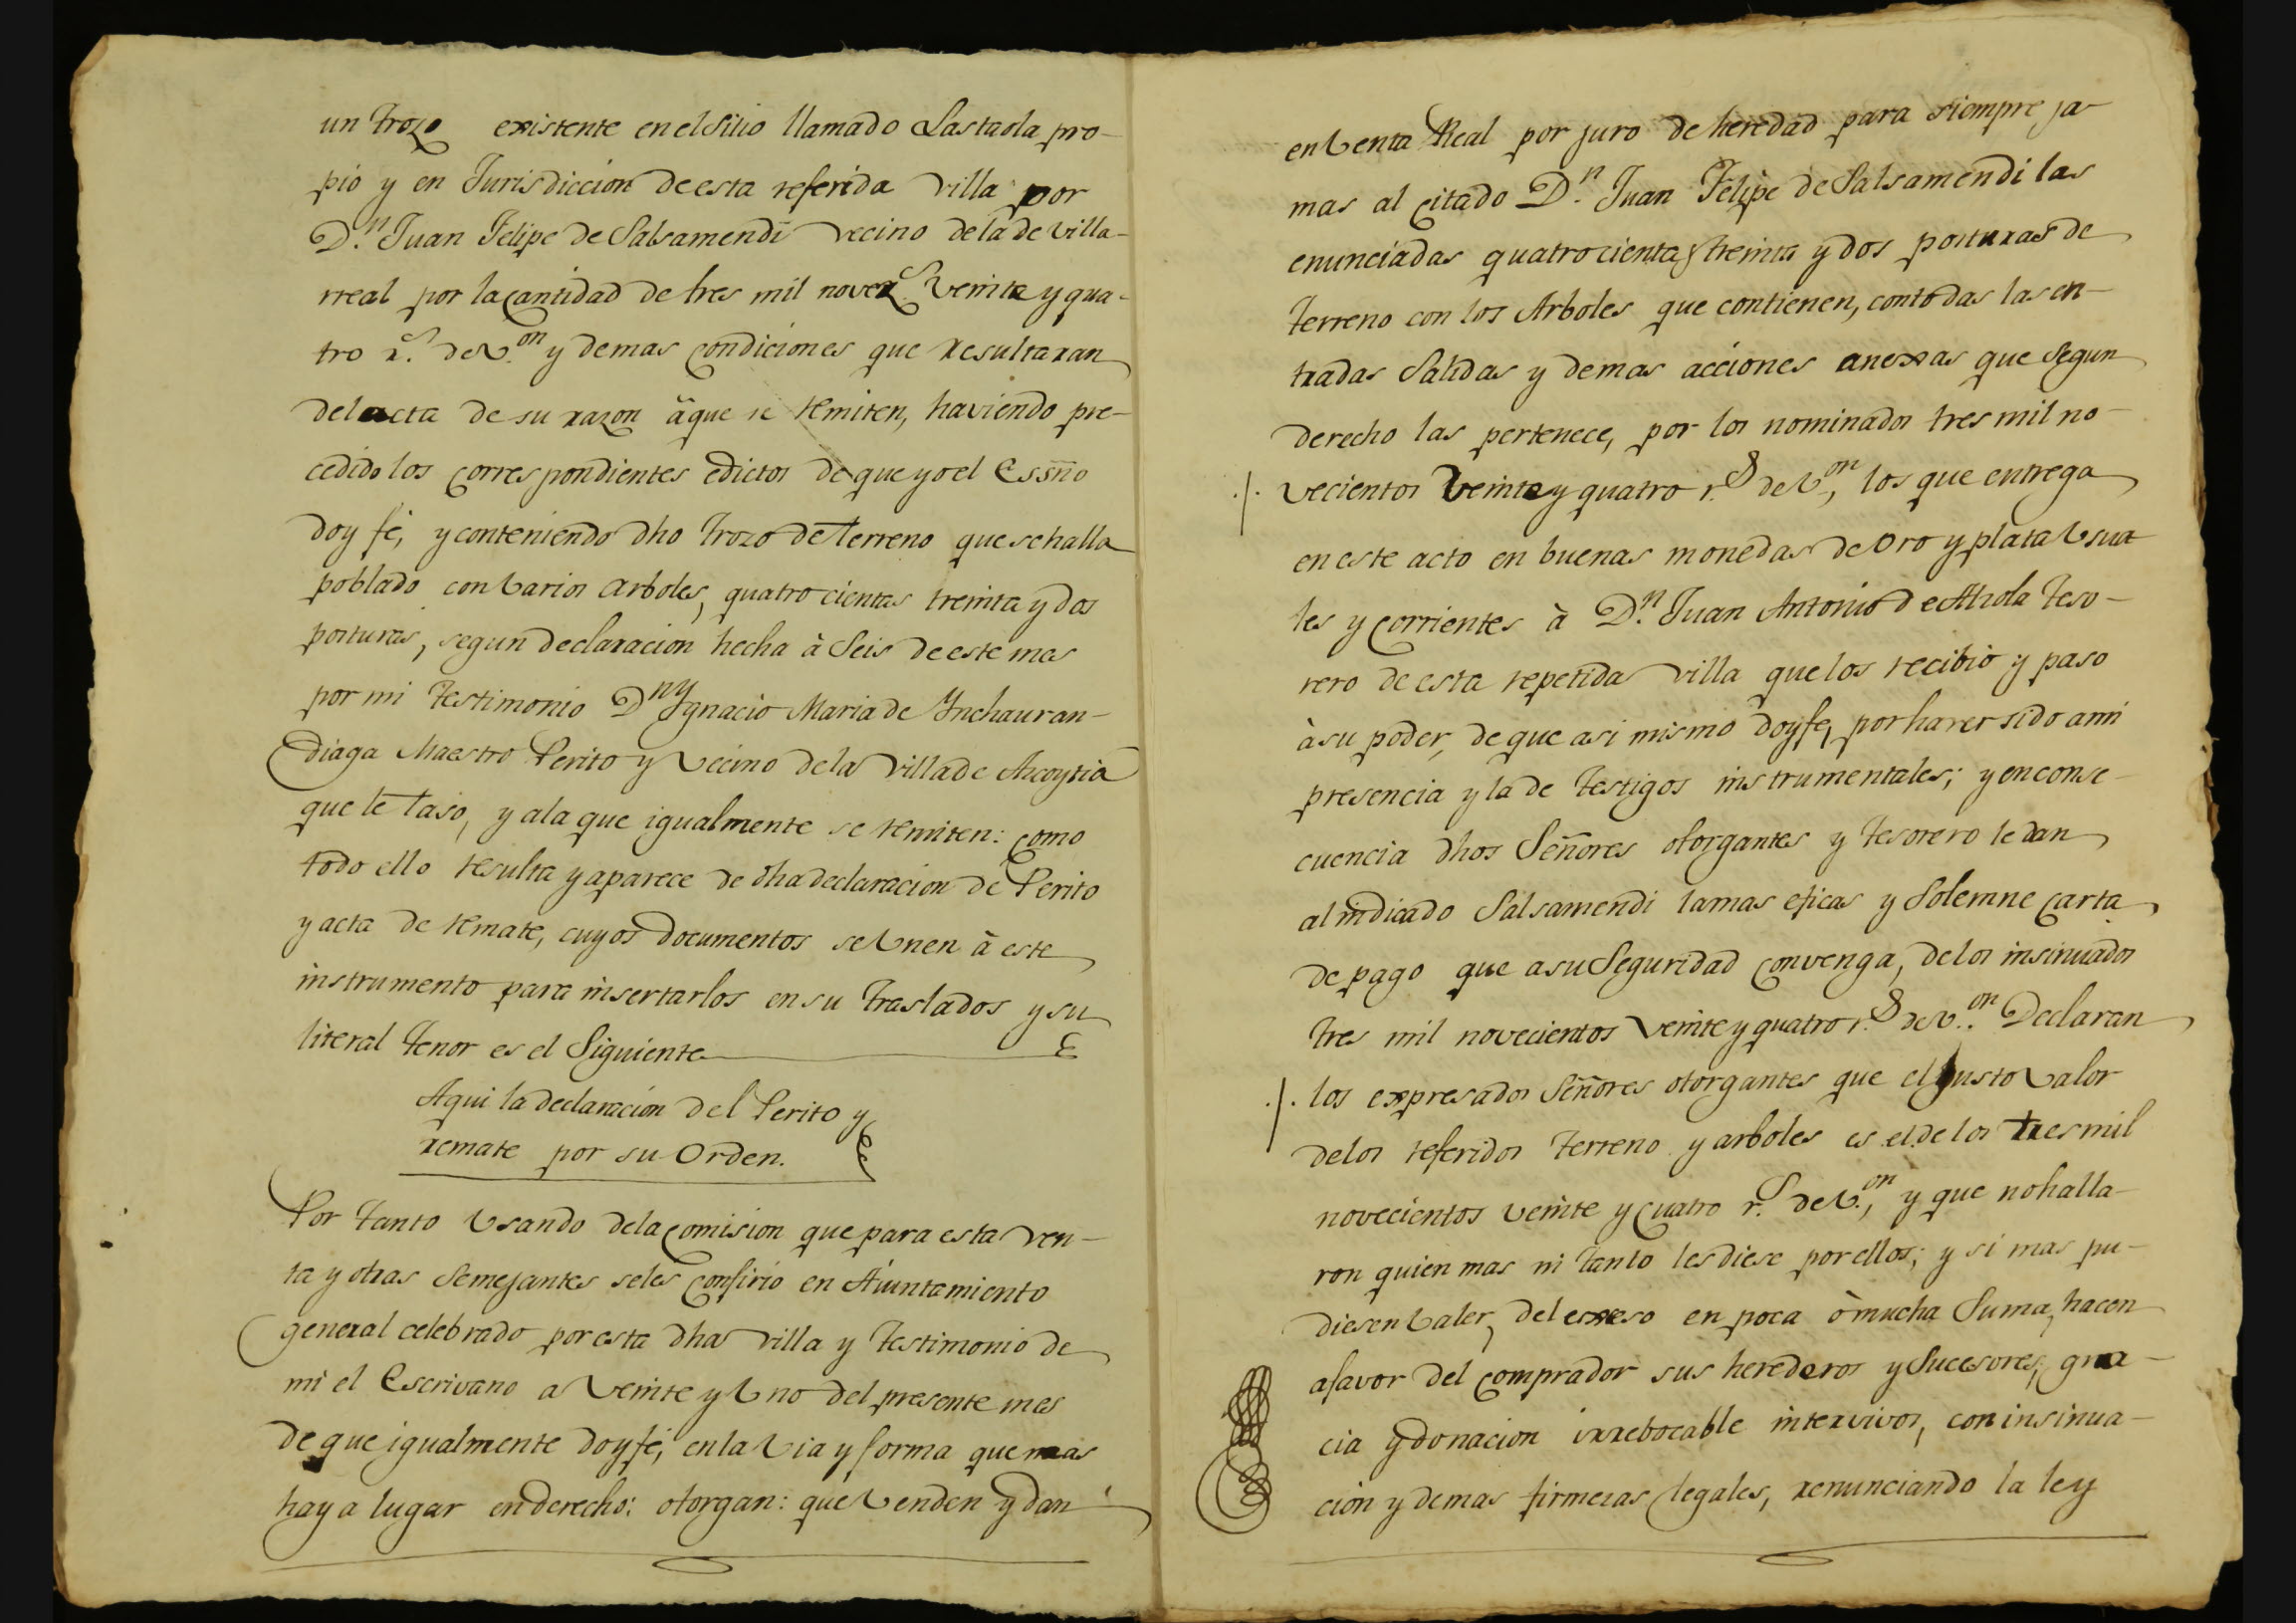 un trozo existente en el sitio llamado Lastaola pro-
pio y en Jurisdiccion de esta referida villa por
D.n Juan Felipe de Salsamendi vecino de la de Villa-
rreal por la cantidad de tres mil novez.s veinte y qua-
tro r.s de V.on y demas condiciones que resultaran
del acta de su razon à que se remiten, haviendo pre-
cedido los correspondientes edictos de que yo el Essño
doy fé, y conteniendo dho trozo de terreno que se halla
poblado con varios arboles, quatrocientas treinta y dos
posturas, segun declaracion hecha à Seis de este mes
por mi testimonio D.n Ygnacio Maria de Ynchauran-
diaga Maestro Perito y vecino de la villa de Azcoytia
que le taso, y a la que igualmente se remiten: como
todo ello resulta y aparece de dha declaracion de Perito
y acta de remate, cuyos documentos se unen à este
instrumento para insertarlos en su traslados y su
literal tenor es el Siguiente
Aqui la declaracion del Perito y
remate por su Orden.
Por tanto usando de la comision que para esta ven-
ta y otras semejantes se les confirio en Aiuntamiento
general celebrado por esta dha villa y testimonio de
mi el Escrivano a veinte y uno del presente mes
de que igualmente doy fé, en la via y forma que mas
haya lugar en derecho: otorgan: que venden y dan
en venta Real por juro de heredad para siempre ja-
mas al citado D.n Juan Felipe de Salsamendi las
enunciadas quatrocientas treinta y dos posturas de
terreno con los Arboles que contienen, con todas las en-
tradas Salidas y demas acciones anexas que segun
derecho las pertenece, por los nominados tres mil no-
vecientos veinte y quatro r.s de V.on, los que entrega
en este acto en buenas monedas de oro y plata usua
les y corrientes à D.n Juan Antonio de Teso-
rero de esta repetida villa que los recibió y paso
à su poder, de que asi mismo doy fe, por haver sido a mi
presencia y la de testigos instrumentales; y en conse-
cuencia dhos Señores otorgantes y tesorero le dan
al indicado Salsamendi la mas eficas y Solemne carta
de pago que a su Seguridad convenga, de los insinuados
tres mil novecientos veinte y quatro r.s de V.on. Declaran
los expresados Señores otorgantes que el justo valor
de los referidos terreno y arboles es el de los tres mil
novecientos veinte y cuatro r.s de V.on, y que no halla-
ron quien mas ni tanto les diese por ellos; y si mas pu-
diesen valer, del exseso en poca ò mucha Suma, hacen
a favor del comprador sus herederos y Sucesores, gra-
cia y donacion irrebocable intervivos, con insinua-
cion y demas firmezas legales, renunciando la ley